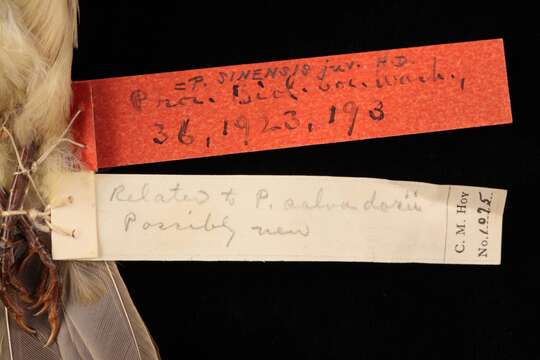 = P. SINENSIS juv. H.D.
Proc. Biol. Soc. Wash.,
36, 1923, 193
Related to P. salvadorii
Possibly new
C. M. Hoy
No. 1075.